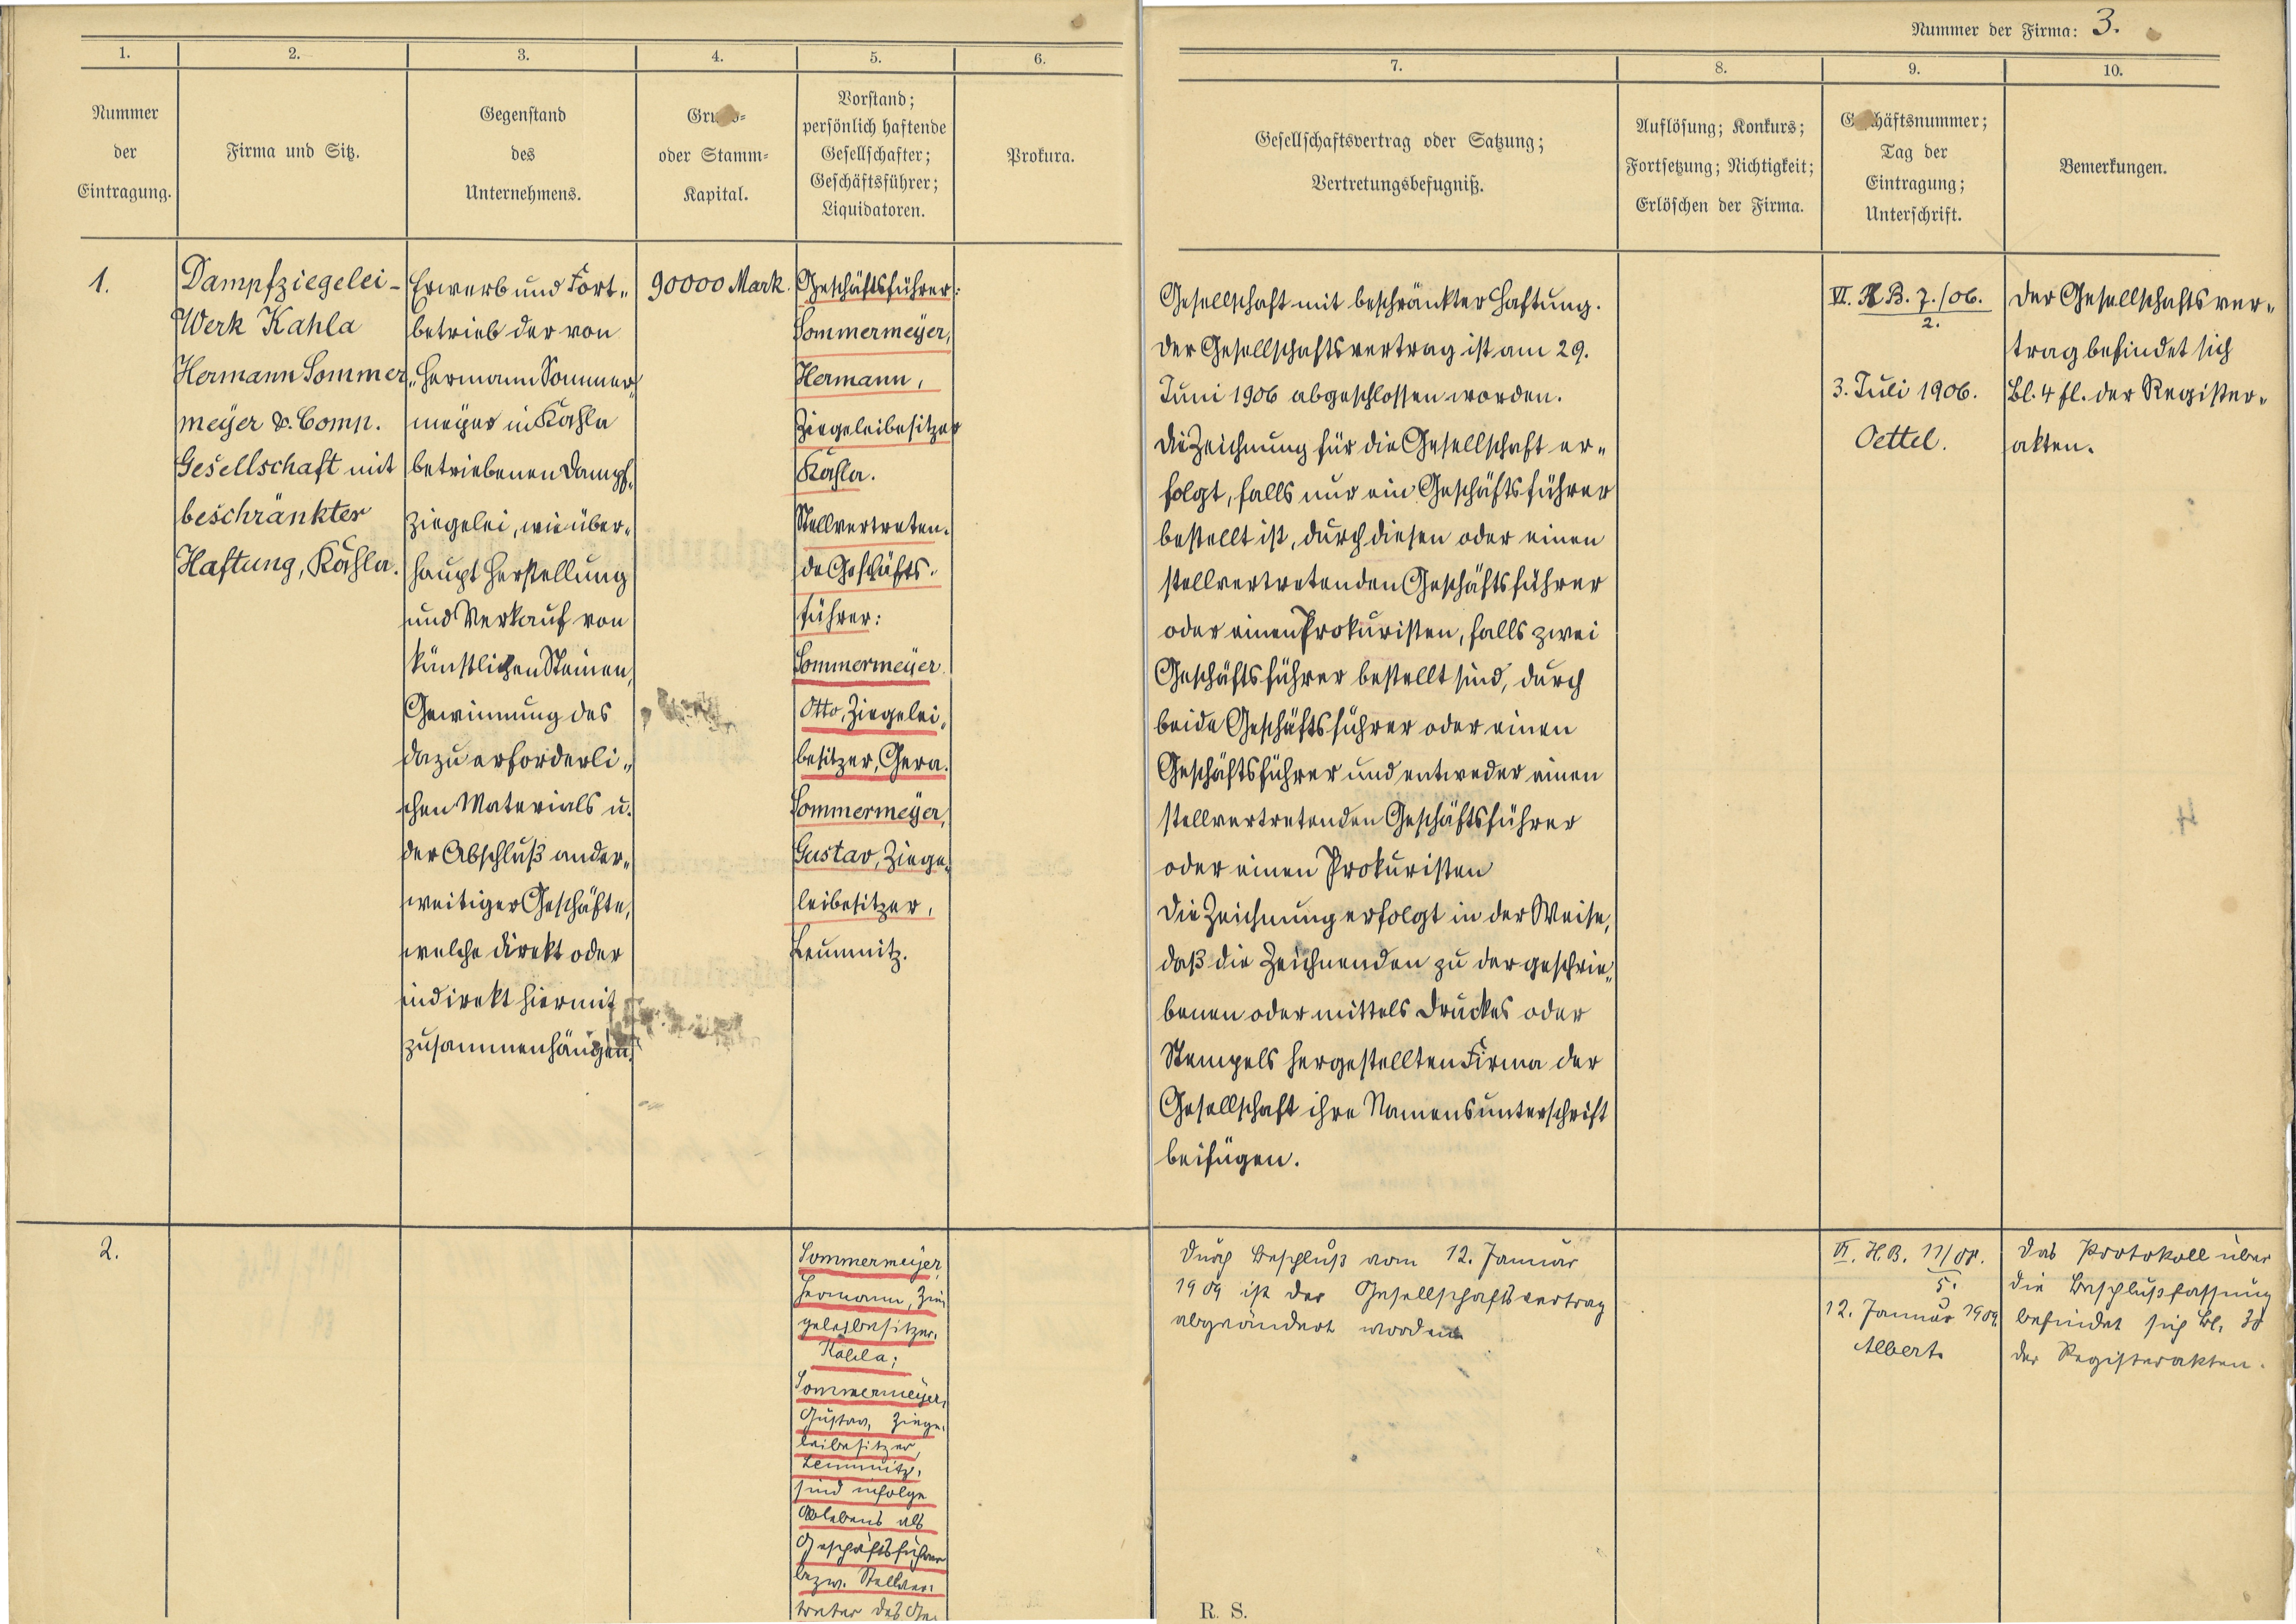 Nummer der Firma: 3.
1.
2.
3.
4.
5.
6.
7.
8.
9.
10.
Nummer
der
Eintragung.
Firma und Sitz.
Gegenstand
des
Unternehmens.
oder Stamm-
Kapital.
Vorstand;
persönlich haftende
Gesellschafter;
Geschäftsführer;
Liquidatoren.
Prokura.
Gesellschaftsvertrag oder Satzung;
Vertretungsbefugniß.
Auflösung; Konkurs;
Fortsetzung; Nichtigkeit;
Erlöschen der Firma.
Geschäftsnummer;
Tag der
Eintragung;
Unterschrift.
Bemerkungen.
1.
Dampfziegelei-
Werk Kahla
Hermann Sommer
meÿer & Comp.
Gesellschaft mit
beschränkter
Haftung, Kahla.
Erwerb und Fort-
betrieb der von
Hermann Sommer
meÿer in Kahla
betriebenen Dampf-
ziegelei, wie über-
haupt Herstellung
und Verkauf von
künstlichen Steinen,
Gewinnung des
dazu erforderli-
chen Materials u.
der Abschluß ander-
weitiger Geschäfte,
welche direkt oder
indirekt hiermit
zusammenhängen.
90000 Mark.
Geschäftsführer:
Sommermeÿer,
Hermann,
Ziegeleibesitzer
Kahla.
Stellvertreten-
de Geschäfts-
führer:
Sommermeÿer
Otto, Ziegelei-
besitzer, Gera.
Sommermeÿer,
Gustav, Ziege-
leibesitzer,
Leumnitz.
Gesellschaft mit beschränkter Haftung.
Der Gesellschaftsvertrag ist am 29.
Juni 1906 abgeschlossen worden.
Die Zeichnung für die Gesellschaft er-
folgt, falls nur ein Geschäftsführer
bestellt ist, durch diesen oder einen
stellvertretenden Geschäftsführer
oder einen Prokuristen, falls zwei
Geschäftsführer bestellt sind, durch
beide Geschäftsführer oder einen
Geschäftsführer und entweder einen
stellvertretenden Geschäftsführer
oder einen Prokuristen
Die Zeichnung erfolgt in der Weise,
daß die Zeichnenden zu der geschrie-
benen oder mittels Druckes oder
Stempels hergestellten Firma der
Gesellschaft ihre Namensunterschrift
beifügen.
VI. H B. 7./06.
2.
3. Juli 1906.
Oettel.
Der Gesellschaftsver-
trag befindet sich
Bl. 4 fl. der Register-
akten.
2.
Sommermeyer,
Hermann, Zie-
geleibesitzer,
Kahla;
Sommermeÿer,
Gustav, Ziege-
leibesitzer,
Leumnitz,
sind infolge
Ablebens als
Geschäftsführer
bezw. Stellver-
treter des Ge-
Durch Beschluß vom 12. Januar
1909 ist der Gesellschaftsvertrag
abgeändert worden.
VI. H.B. 11/08.
5.
12. Januar 1909.
Albert.
Das Protokoll über
die Beschlußfassung
befindet sich Bl. 38
der Registerakten.
R. S.